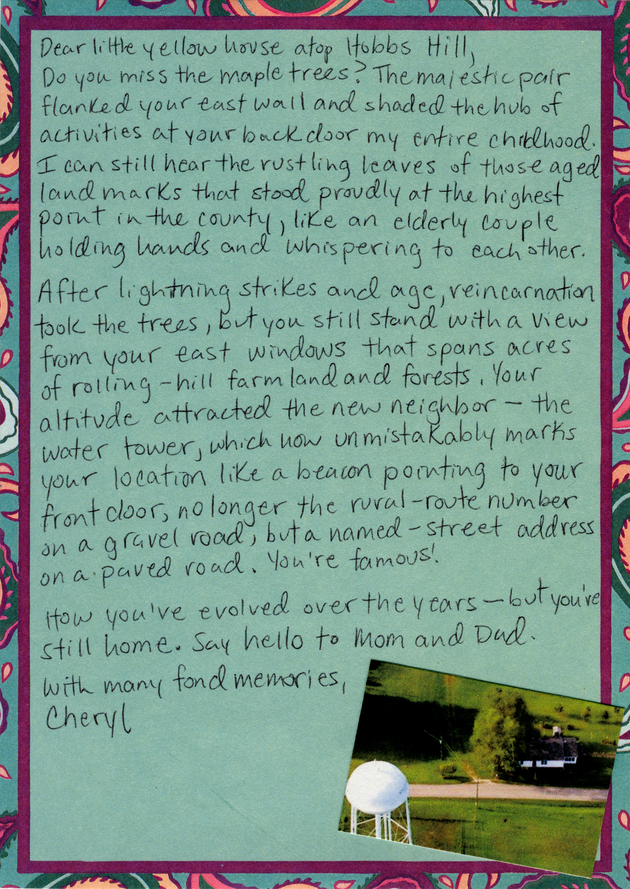 Dear little yellow house atop Hobbs Hill,
Do you miss the maple trees? The majestic pair
flanked your east wall and shaded the hub of
activities at your back door my entire childhood.
I can still hear the rustling leaves of those aged
landmarks that stood proudly at the highest
point in the county, like an elderly couple
holding hands and whispering to each other.
After lightning strikes and age, reincarnation
took the trees, but you still stand with a view
from your east windows that spans acres
of rolling-hill farmland and forests. Your
altitude attracted the new neighbor — the
water tower, which now unmistakably marks
your location like a beacon pointing to your
front door, no longer the rural-route number
on a gravel road, but a named-street address
on a paved road. You're famous!
How you've evolved over the years — but you're
still home. Say hello to Mom and Dad.
With many fond memories,
Cheryl